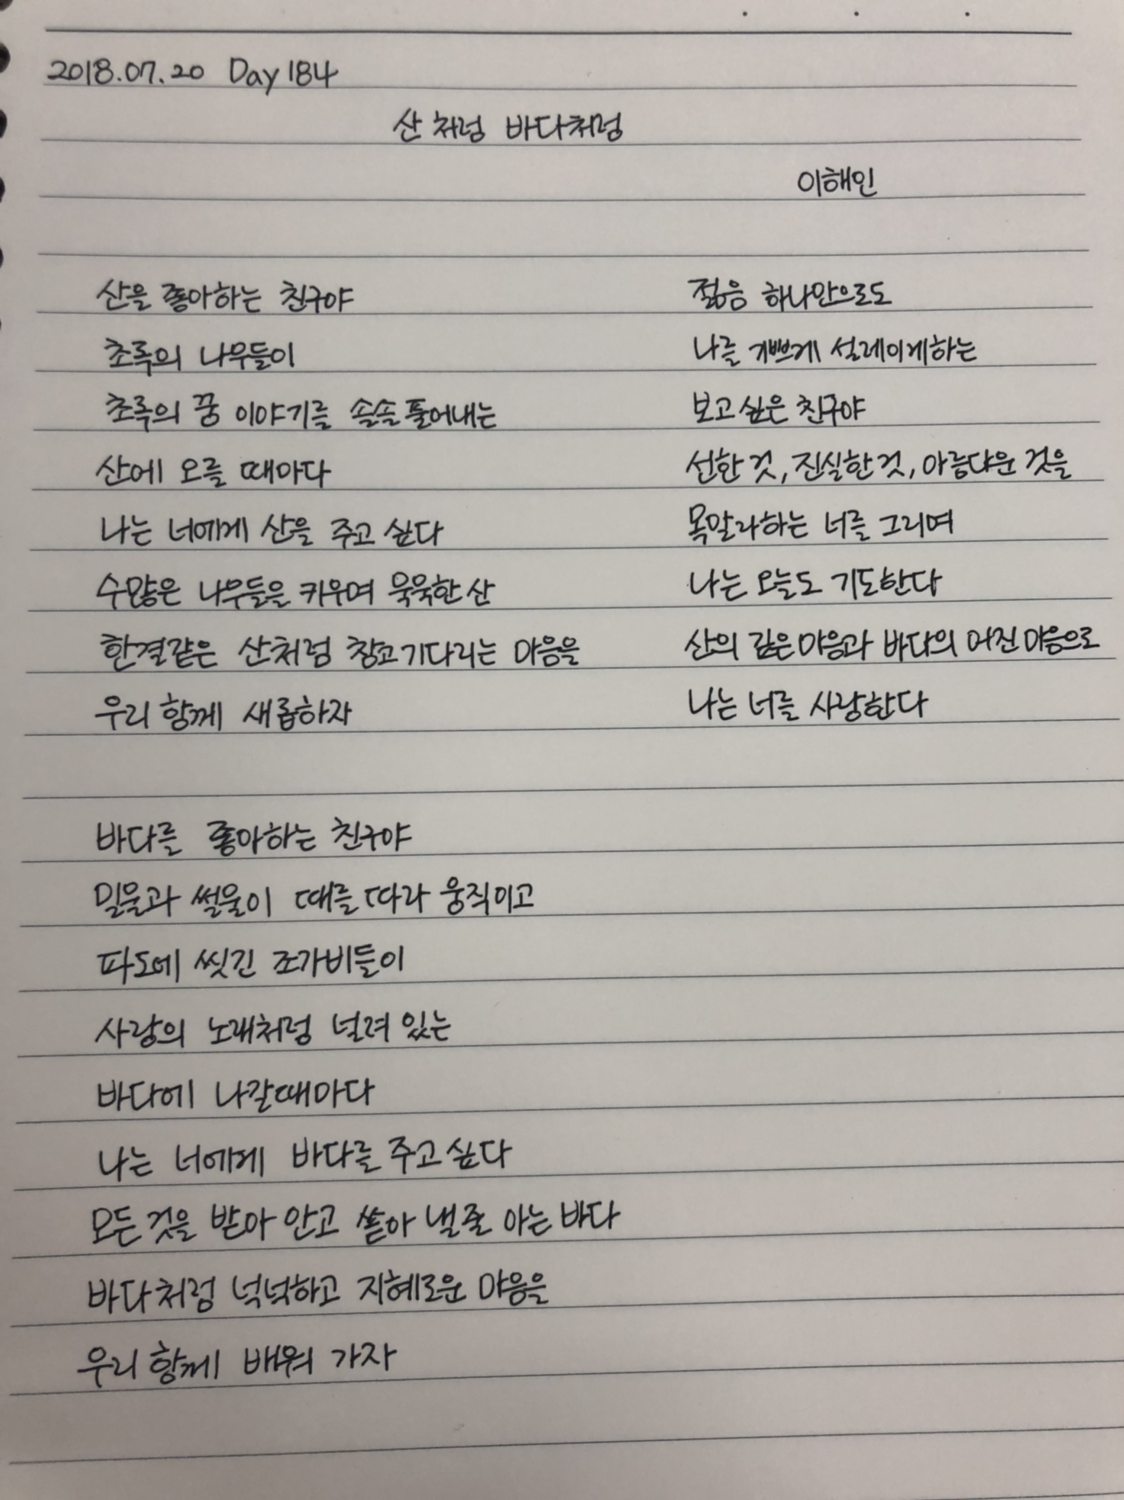 2018.07.20 Day 184
산처럼 바다처럼
이해인
산을 좋아하는 친구야
초록의 나무들이
초록의 꿈 이야기를 솔솔 풀어내는
산에 오를 때마다
나는 너에게 산을 주고 싶다
수많은 나무들을 키우며 묵묵한 산
한결같은 산처럼 참고 기다리는 마음을
우리 함께 새롭하자
바다를 좋아하는 친구야
밀물과 썰물이 때를 따라 움직이고
파도에 씻긴 조가비들이
사랑의 노래처럼 널려 있는
바다에 나갈때마다
나는 너에게 바다를 주고 싶다
모든 것을 받아 안고 쏟아 낼줄 아는 바다
바다처럼 넉넉하고 지혜로운 마음을
우리 함께 배워 가자
젊음 하나만으로도
나를 기쁘게 설레이게하는
보고 싶은 친구야
선한 것, 진실한 것, 아름다운 것을
목말라하는 너를 그리며
나는 오늘도 기도한다
산의 깊은 마음과 바다의 어진 마음으로
나는 너를 사랑한다